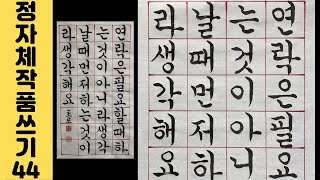 정자체작품쓰기44
연락은필요할때하
는것이아니라생각
날때먼저하는것이
라생각해요
연락은필요
는것이아니
날때먼저하
라생각해요